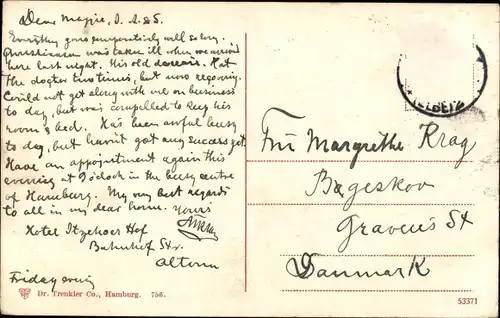 Dear Magrie, I. A. & S.
Everything goes comparatively well so long.
was taken ill when we arrived
here last night. His old desease. Had
the doctor two times, but now recovering.
Could not get along with me on business
to day, but was compelled to keep his
room & bed. Has been awful busy
to day, but havn't got any success yet.
Have an appointment again this
evening at 9 o'clock in the busy centre
of Hamburg. My very best regards
to all in my dear home. Yours
Hotel Itzehoer Hof
Bahnhof Str.
Altona
Friday evnig
Frü Margrethe Krag
Bøgeskov
Gravens St
Danmark
Dr. Trenkler Co., Hamburg. 756.
53371